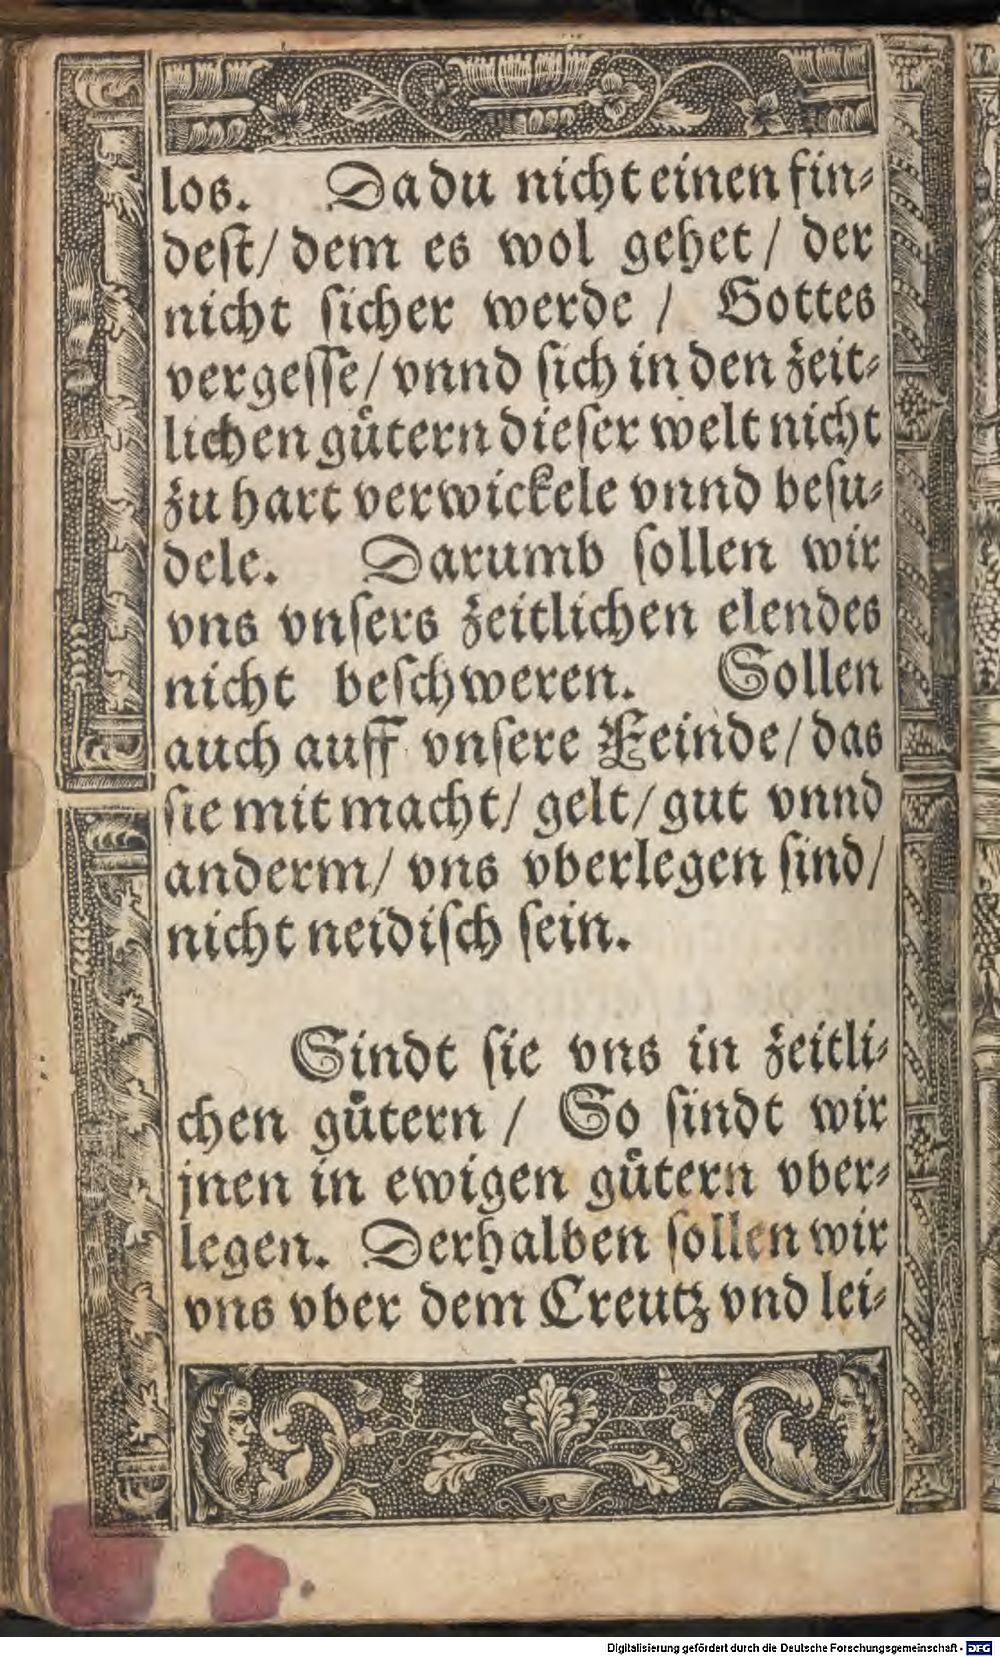 los. Da du nicht einen fin⸗
deſt / dem es wol gehet / der
nicht ſicher werde / Gottes
vergeſſe / vnnd ſich in den zeit⸗
lichen guͤtern dieſer welt nicht
zu hart verwickele vnnd beſu⸗
dele. Darumb ſollen wir
vns vnſers zeitlichen elendes
nicht beſchweren. Sollen
auch auff vnſere Feinde / das
ſie mit macht / gelt / gut vnnd
anderm / vns vberlegen ſind /
nicht neidiſch ſein.
Sindt ſie vns in zeitli⸗
chen guͤtern / So ſindt wir
jnen in ewigen guͤtern vber⸗
legen. Derhalben ſollen wir
vns vber dem Creutz vnd lei⸗
Digitalisierung gefördert durch die Deutsche Forschungsgemeinschaft - DFG